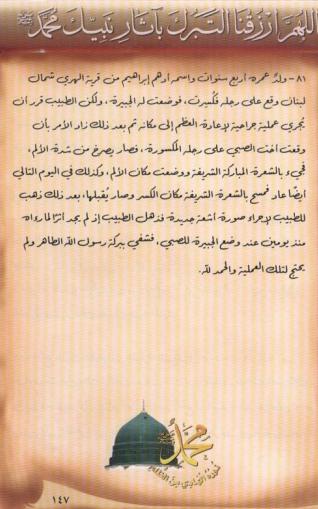 اللهم ارزقنا التبرك بآثار نبيك محمد ﷺ
٨١ - ولد عمره أربع سنوات واسمه أدهم إبراهيم من قرية المهري شمال
لبنان وقع على رجله فكُسرت، فوضعت له الجبيرة، ولكن الطبيب قرر أن
يجري عملية جراحية لإعادة العظم إلى مكانه ثم بعد ذلك زاد الأمر بأن
وقعت أخت الصبي على رجله المكسورة، فصار يصرخ من شدة الألم،
فجيء بالشعرة المباركة الشريفة ووضعت مكان الألم، وكذلك في اليوم التالي
أيضًا عاد فمسح بالشعرة الشريفة مكان الكسر وصار يُقبلها، بعد ذلك ذهب
للطبيب لإجراء صورة أشعة جديدة، فذهل الطبيب إذ لم يجد أثرًا لما رءاه
منذ يومين عند وضع الجبيرة للصبي، فشفي ببركة رسول الله الطاهر ولم
يحتج لتلك العملية والحمد لله.
محمد
١٤٧